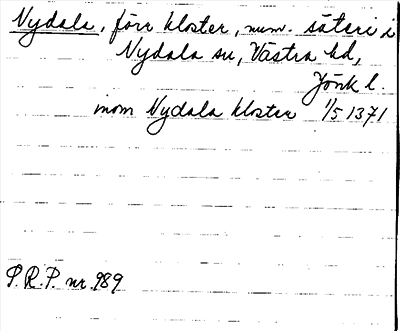 Nydala, förr kloster, num. säteri i
Nydala sn, Västra hd,
Jönk l.
inom Nydala kloster 1/5 1371
P.R.P. nr 989